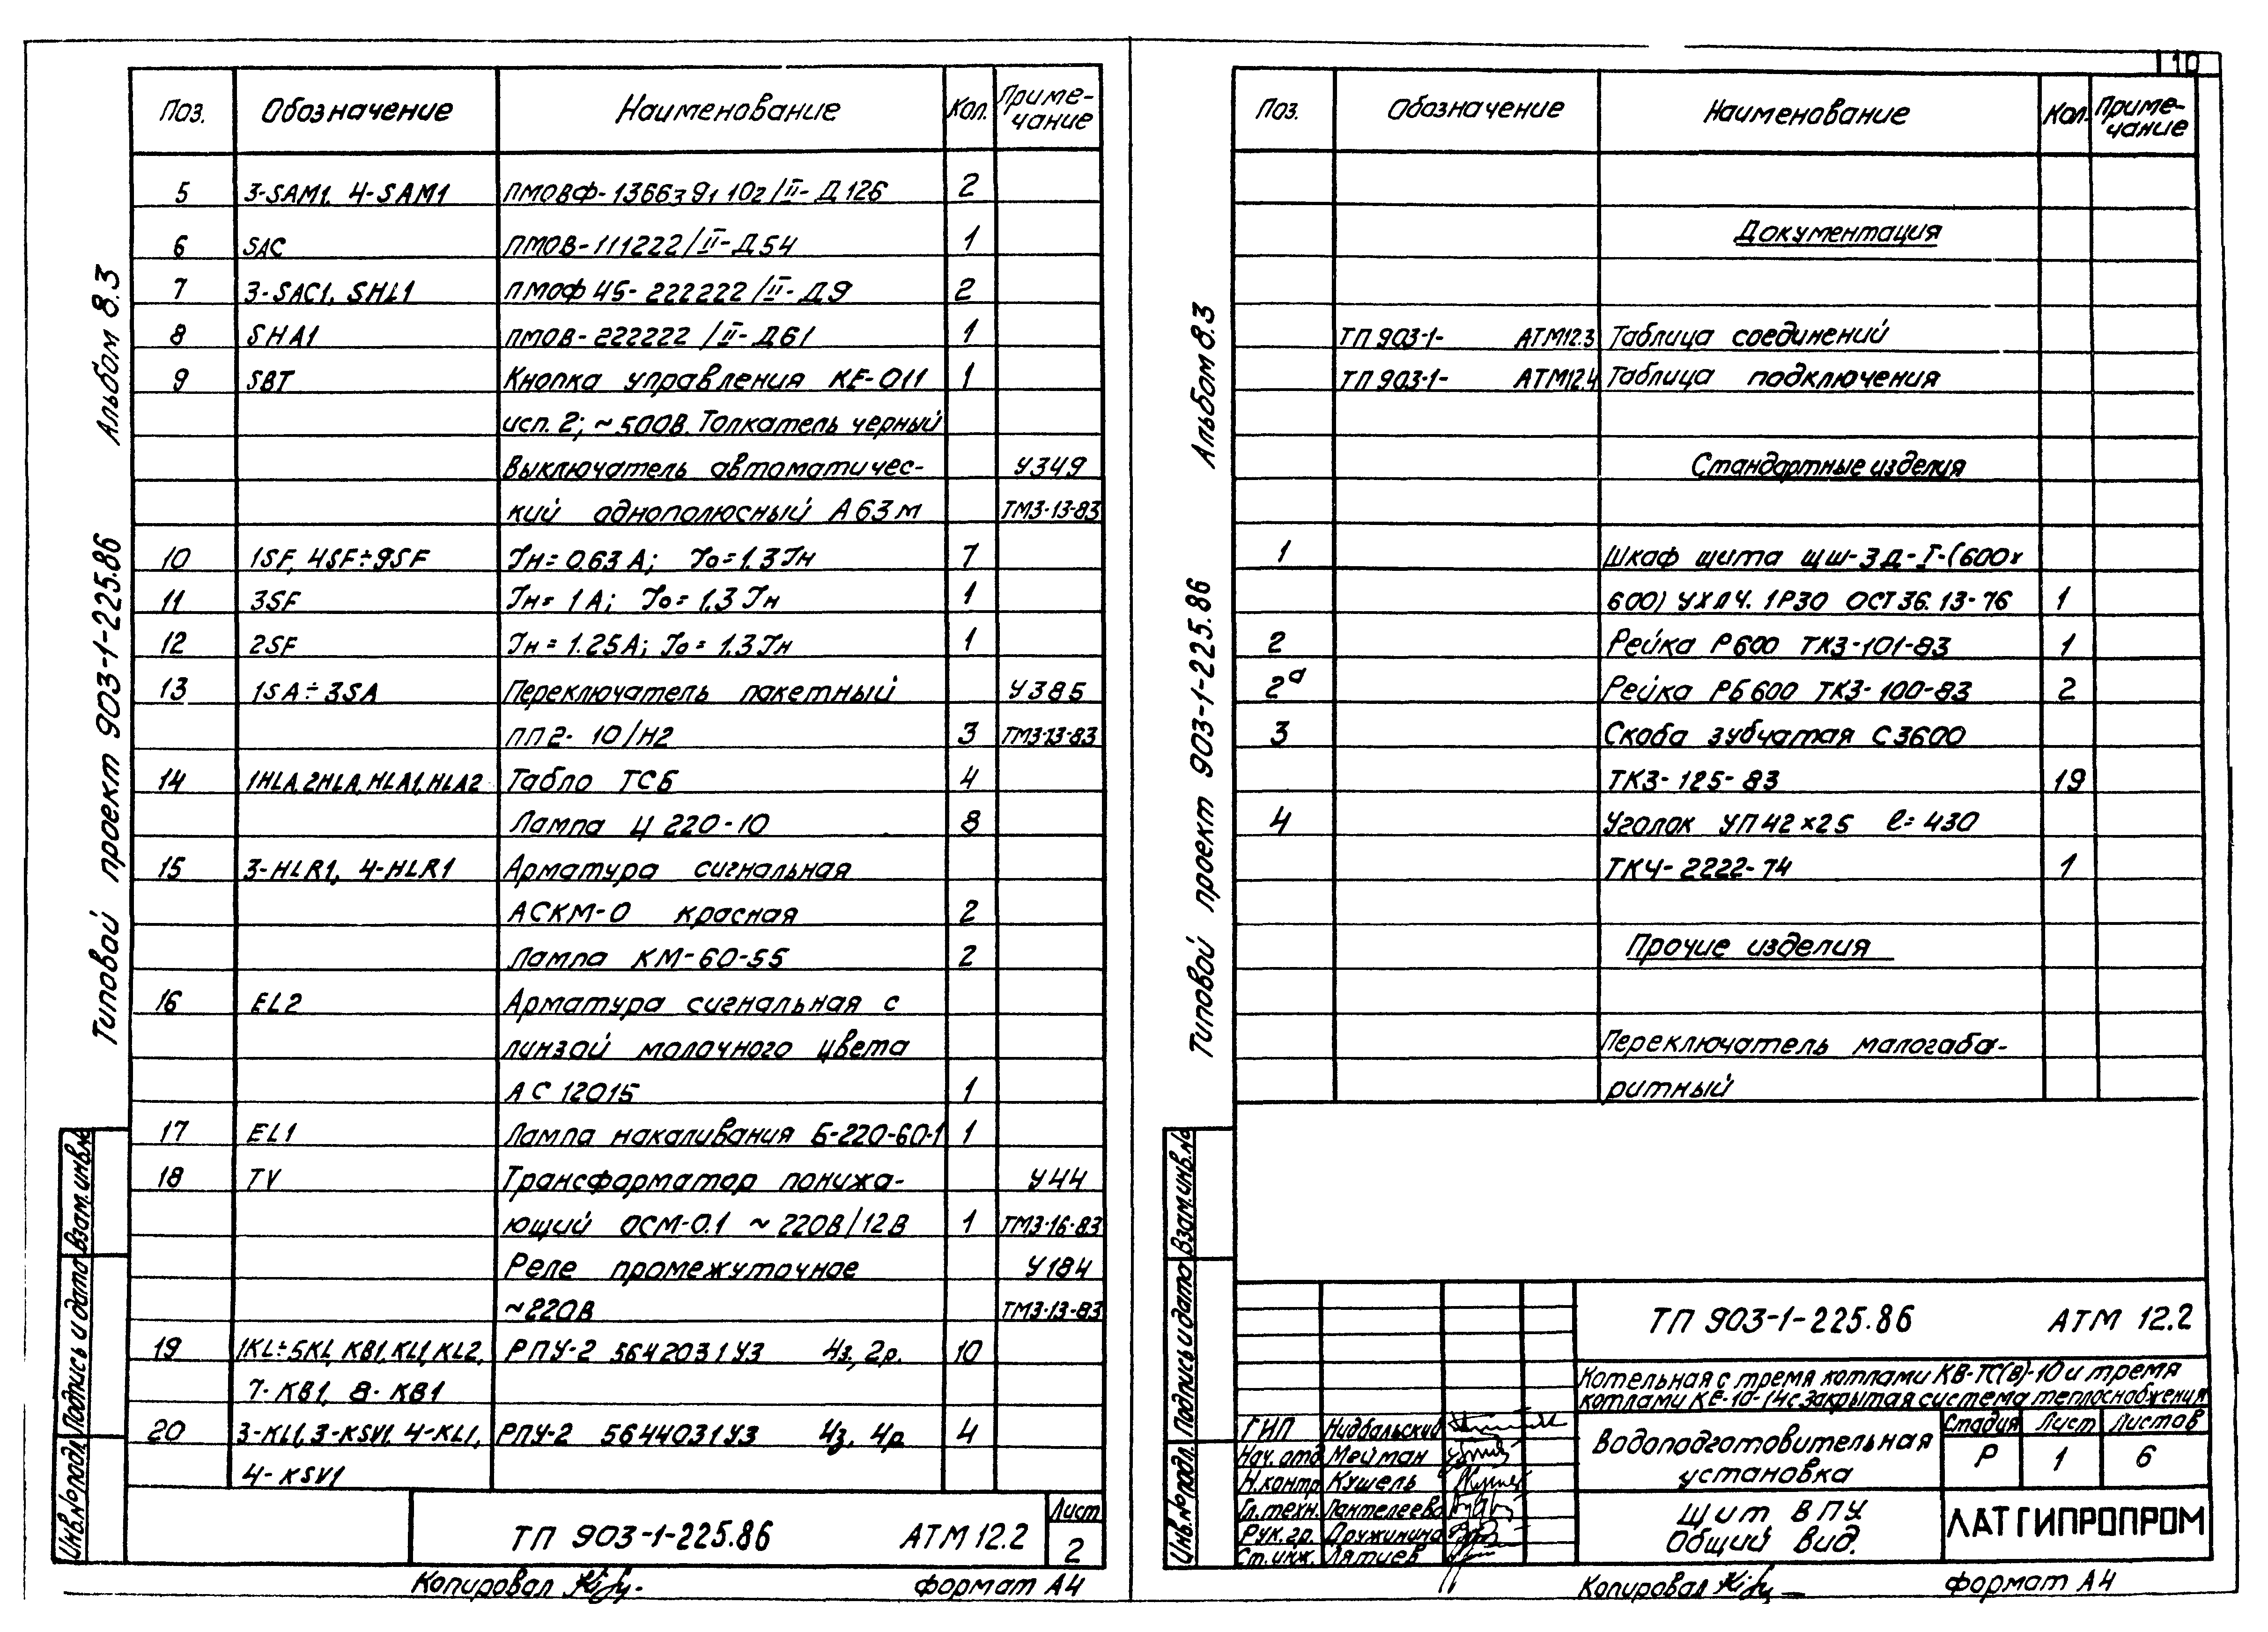 10
Поз. Обозначение Наименование Кол. Приме-
чание
5 3-SAM1, 4-SAM1 ПМОВФ-1366391102/II-Д126 2
6 SAC ПМОВ-111222/II-Д54 1
7 3-SAC1, SHL1 ПМОФ45-222222/II-Д9 2
8 SHA1 ПМОВ-222222/II-Д61 1
9 SBT Кнопка управления КЕ-011 1
исп. 2; ~500В. Толкатель черный
Выключатель автоматичес- У349
кий однополюсный А63М ТМ3-13-83
10 1SF, 4SF÷9SF Iн=0.63А; Iо=1.3Iн 7
11 3SF Iн=1А; Iо=1.3Iн 1
12 2SF Iн=1.25А; Iо=1.3Iн 1
13 1SA÷3SA Переключатель пакетный У385
ПП2-10/Н2 3 ТМ3-13-83
14 1HLA, 2HLA, HLA1, HLA2 Табло ТСБ 4
Лампа Ц220-10 8
15 3-HLR1, 4-HLR1 Арматура сигнальная
АСКМ-О красная 2
Лампа КМ-60-55 2
16 EL2 Арматура сигнальная с
линзой молочного цвета
АС12015 1
17 EL1 Лампа накаливания Б-220-60-1 1
18 TV Трансформатор понижа- У44
ющий ОСМ-0.1 ~220В/12В 1 ТМ3-16-83
Реле промежуточное У184
~220В ТМ3-13-83
19 1KL÷5KL, KB1, KL1, KL2, РПУ-2 5642031У3 4з, 2р. 10
7-KB1, 8-KB1
20 3-KL1, 3-KSV1, 4-KL1, РПУ-2 5644031У3 4з, 4р 4
4-KSV1
ТП 903-1-225.86 АТМ 12.2
Лист
2
Копировал
формат А4
Альбом 8.3
Типовой проект 903-1-225.86
Взам.инв.№
Подпись и дата
Инв.№подл.
Поз. Обозначение Наименование Кол. Приме-
чание
Документация
ТП 903-1- АТМ12.3 Таблица соединений
ТП 903-1- АТМ12.4 Таблица подключения
Стандартные изделия
1 Шкаф щита ЩШ-3Д-I-(600х
600) УХЛ4. 1Р30 ОСТ36.13-76 1
2 Рейка Р600 ТК3-101-83 1
2а Рейка РБ600 ТК3-100-83 2
3 Скоба зубчатая С3600
ТК3-125-83 19
4 Уголок УП42×25 ℓ=430
ТК4-2222-74 1
Прочие изделия
Переключатель малогаба-
ритный
ТП 903-1-225.86 АТМ 12.2
Котельная с тремя котлами КВ-ТС(В)-10 и тремя
котлами КЕ-10-14с Закрытая система теплоснабжения
ГИП Нидбальский
Нач.отд Мейман
Н.контр Кушель
Гл.техн. Пантелеева
Рук.гр. Дружинина
Ст.инж. Лятиев
Водоподготовительная
установка
Стадия Лист Листов
Р 1 6
Щит ВПУ
Общий вид.
ЛАТГИПРОПРОМ
Копировал
формат А4
Альбом 8.3
Типовой проект 903-1-225.86
Взам.инв.№
Подпись и дата
Инв.№подл.